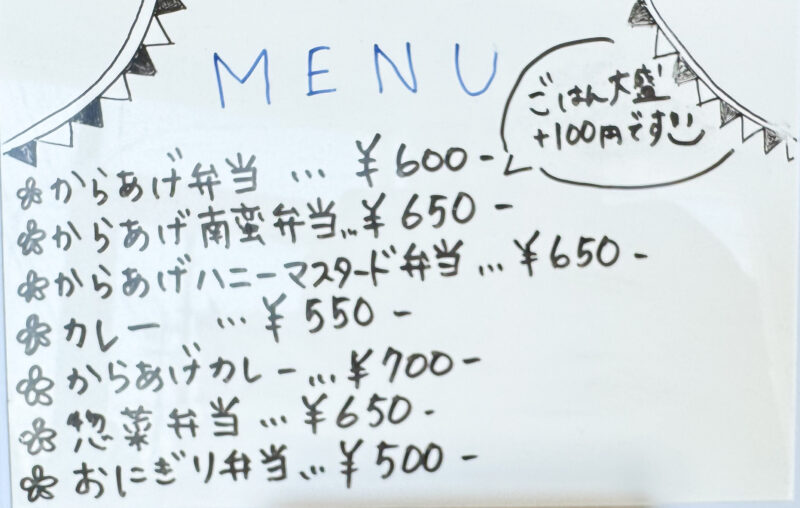 MENU
ごはん大盛
+100円です
からあげ弁当 … ¥600-
からあげ南蛮弁当…¥650-
からあげハニーマスタード弁当…¥650-
カレー …¥550-
からあげカレー…¥700-
惣菜弁当…¥650-
おにぎり弁当…¥500-